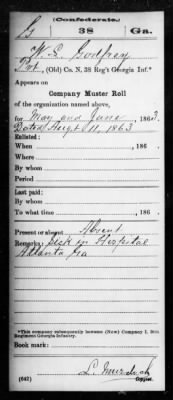 (Confederate.)
G 38 Ga.
W. L. Godfrey
Pvt, (Old) Co. N, 38 Reg't Georgia Inf.*
Appears on
Company Muster Roll
of the organization named above,
for May and June, 1863.
Dated Augt 11, 1863
Enlisted:
When, 186
Where
By whom
Period
Last paid:
By whom
To what time, 186
Present or absent Absent
Remarks: Sick in Hospital
Atlanta Ga
*This company subsequently became (New) Company I, 38th
Regiment Georgia Infantry.
Book mark:
L. Murdock
(642) Copyist.